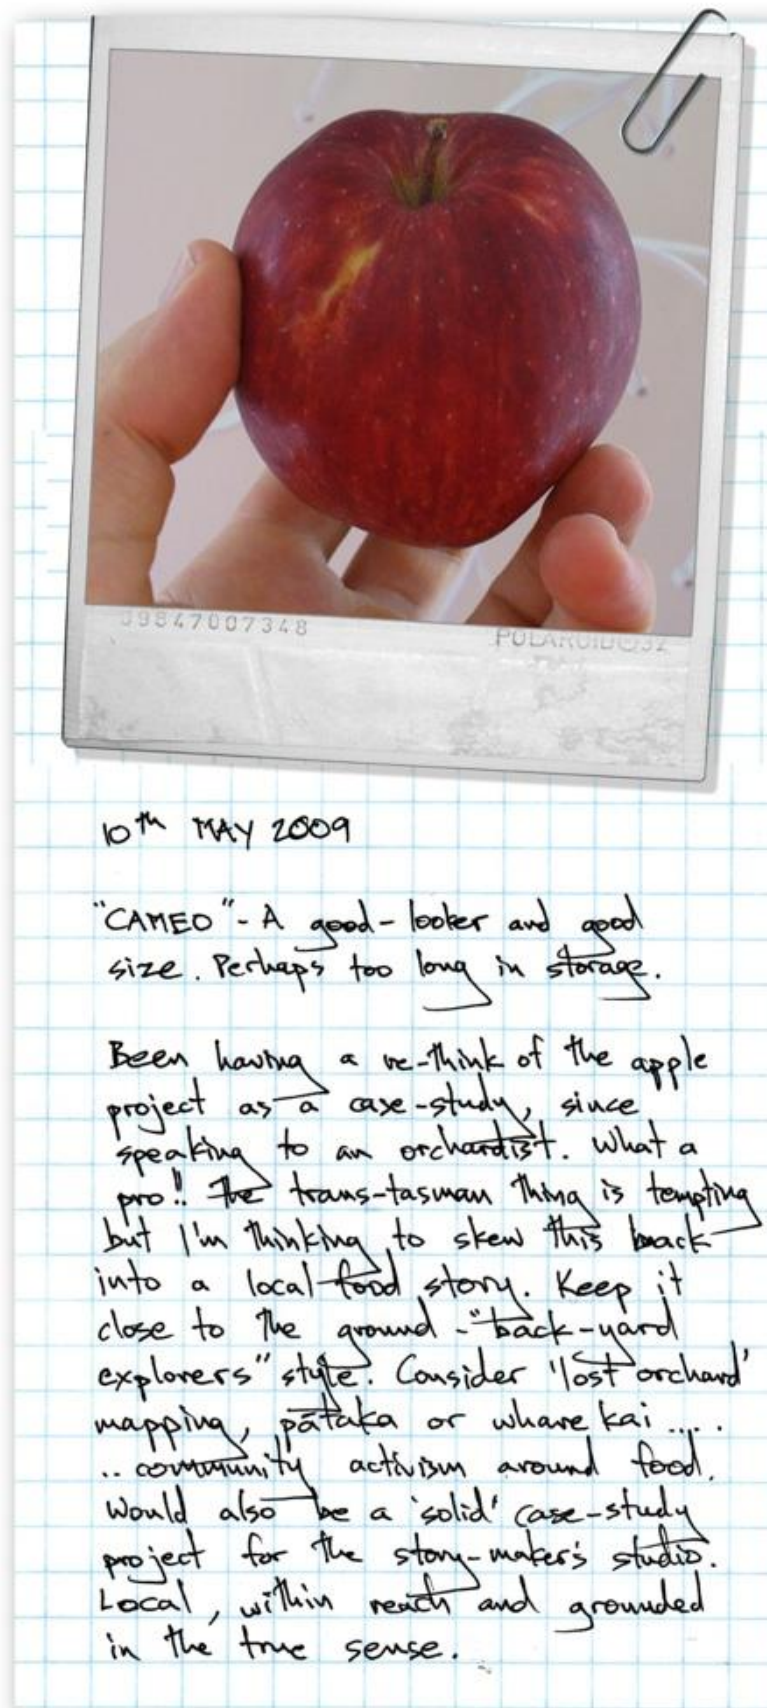 39847007348
POLAROID
10th MAY 2009
"CAMEO" - A good-looker and good
size. Perhaps too long in storage.
Been having a re-think of the apple
project as a case-study, since
speaking to an orchardist. What a
pro!! The trans-tasman thing is tempting
but I'm thinking to skew this back
into a local food story. Keep it
close to the ground - "back-yard
explorers" style. Consider 'lost orchard'
mapping, pātaka or whare kai ....
.. community activism around food.
Would also be a 'solid' case-study
project for the story-maker's studio.
Local, within reach and grounded
in the true sense.